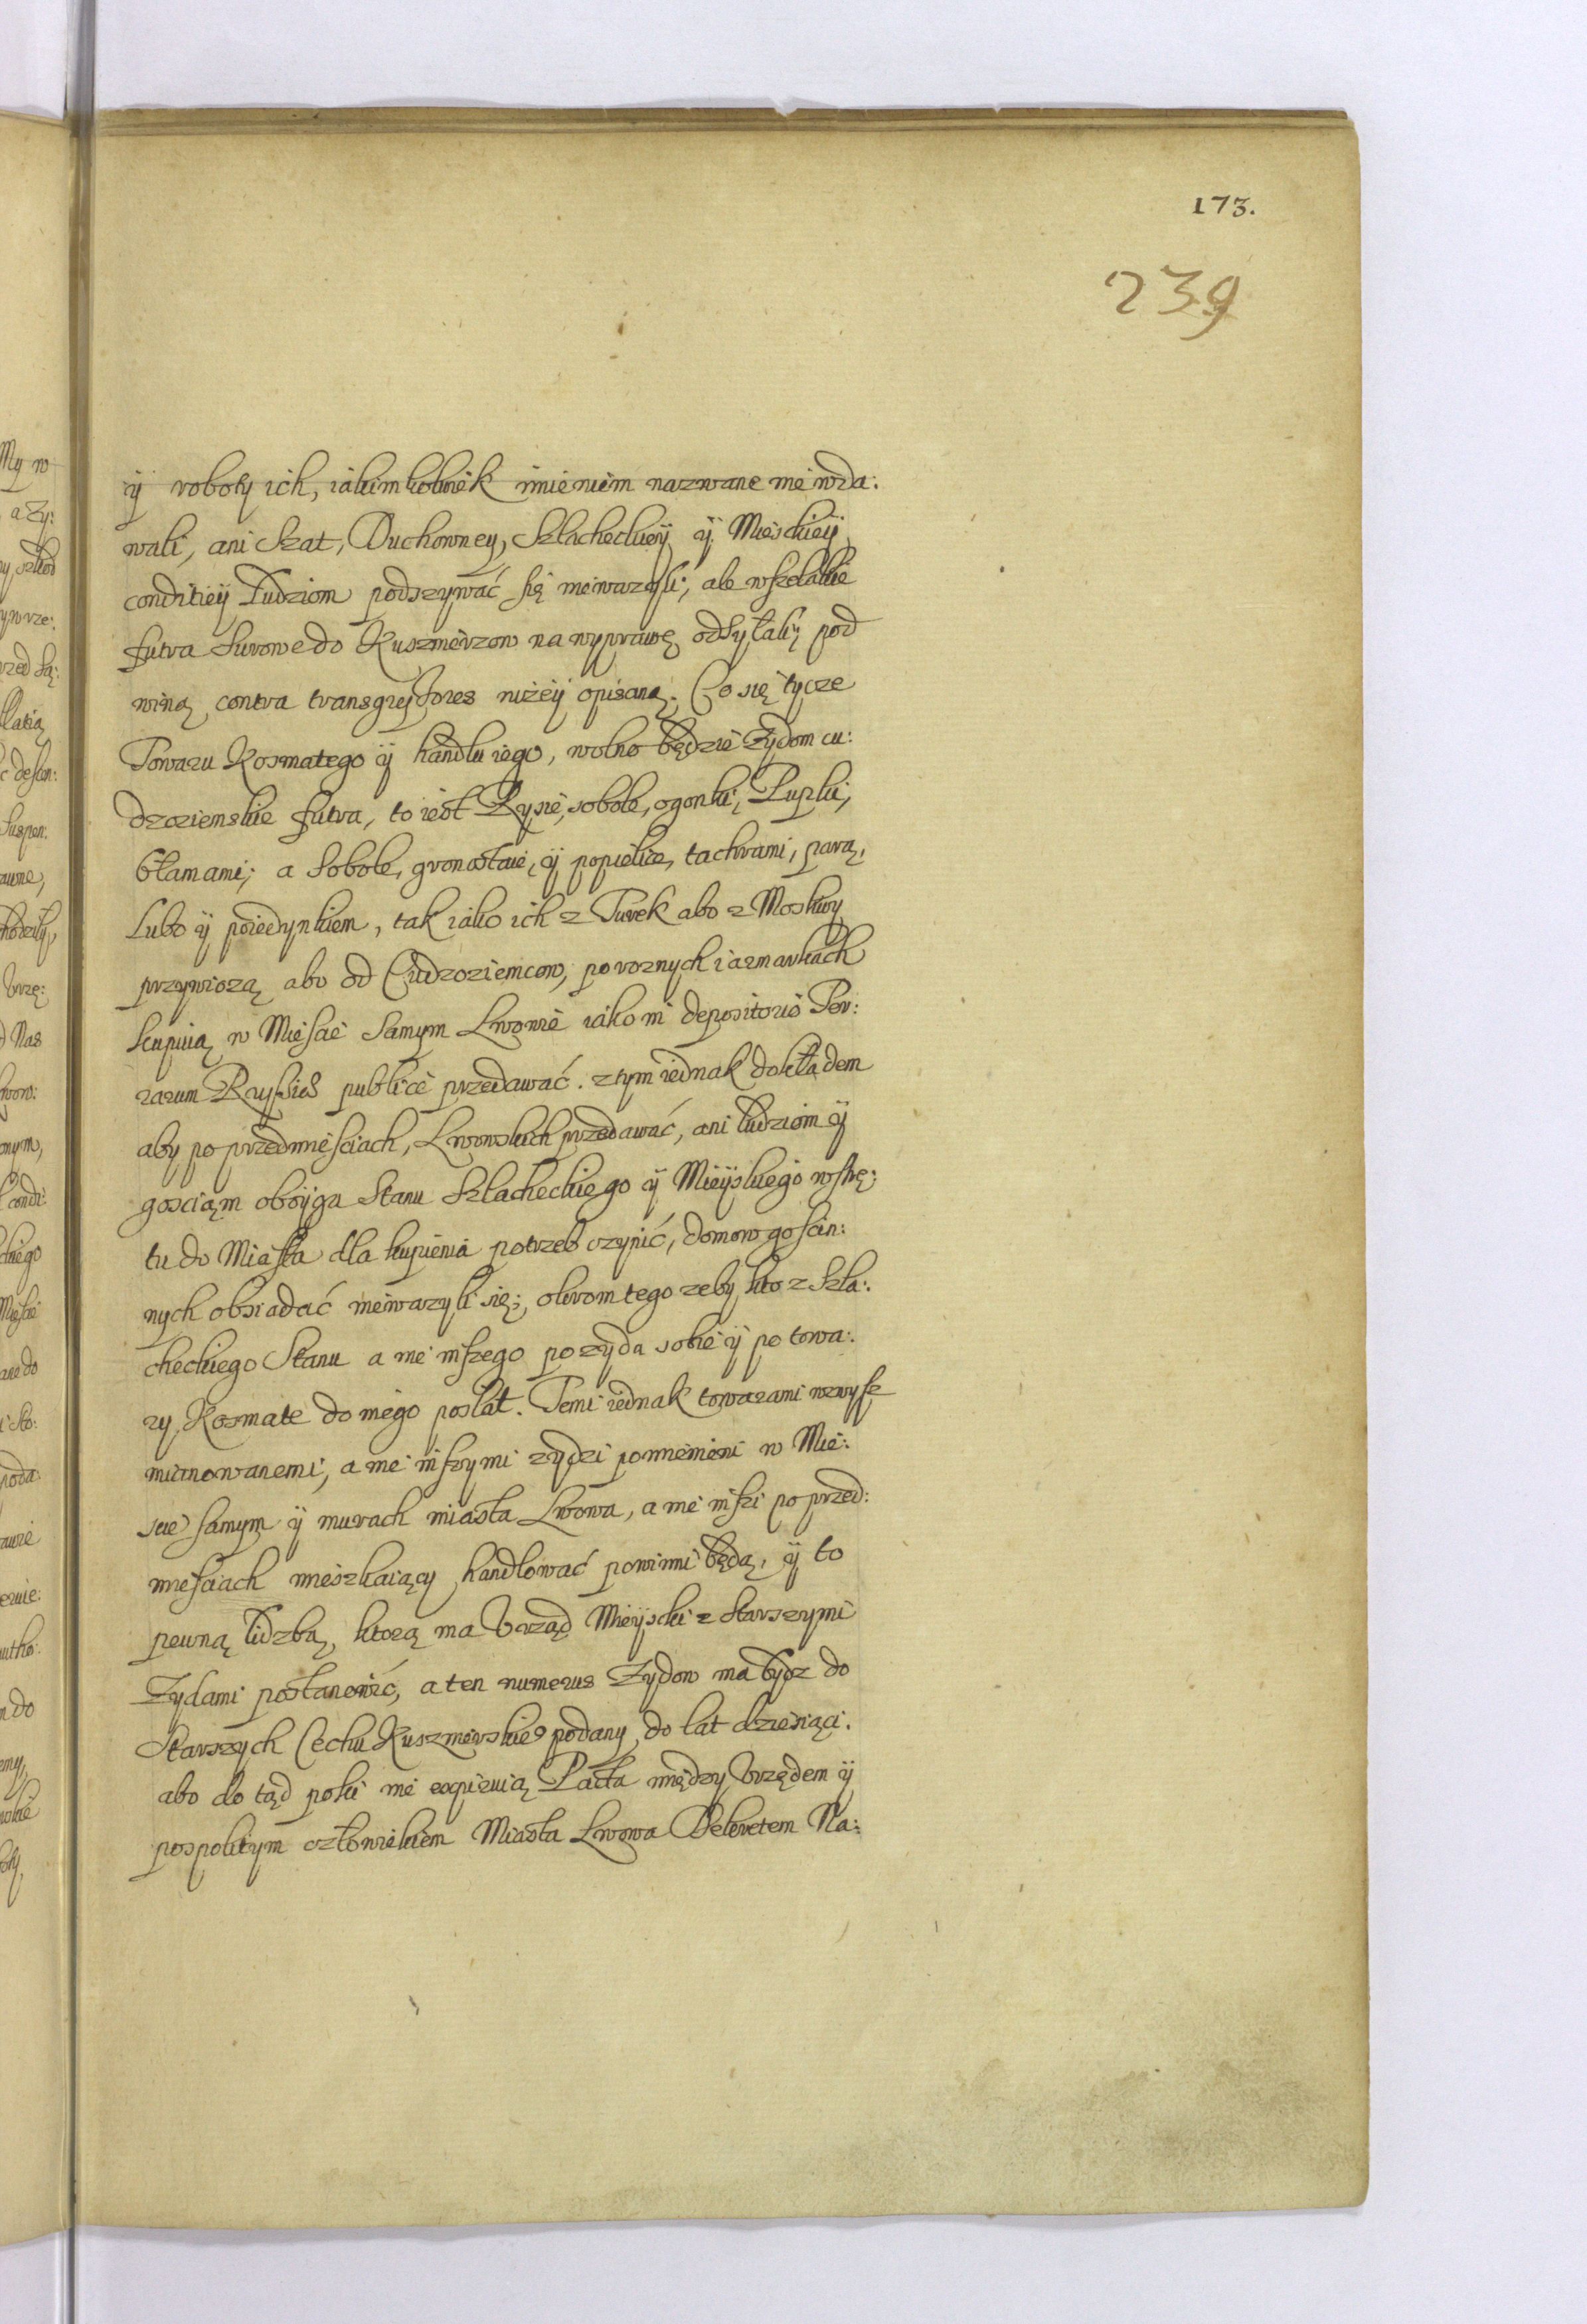 173.
239
ÿ roboty ich, iakimkolwiek imieniem nazwane nie wda:
wali, ani Szat, Duchowney, Szlacheckieÿ ÿ Mieskieÿ
conditieÿ Ludziom podszywać się nieważyli, ale wszelakie
futra Surowe do Kusznierzow na wyprawę odsyłali, pod
winą contra transgressores niżeÿ opisaną. Co się tycze
Towaru Kosmatego ÿ handlu iego, wolno będzie Zydom cu:
dzoziemskie futra, to iest Rysie, sobole, ogonki, Pupki,
błamami; a Sobole, gronostaie, ÿ popielice, tachrami, parą,
Lubo ÿ poiedynkiem, tak iako ich z Turek abo z Moskwy
przywiozą abo od Cudzoziemcow, po roznych iarmarkach
skupuią w Mieście Samym Lwowie iako in depositorio Ter:
rarum Russiae publice przedawać. z tym iednak dokładem
aby po przedmieściach, Lwowskich przedawać, ani ludziom ÿ
gosciąm oboÿga Stanu Szlacheckiego ÿ Mieÿskiego wstrę:
tu do Miasta dla kupienia potrzeb czynić, domow gościn:
nych obsiadać nieważyli się; okrom tego zeby kto z Szla:
checkiego Stanu a nie inszego po zyda sobie ÿ po towa:
ry Kosmate do niego posłał. Temi iednak towarami wzwysz
mianowanemi, a nie inszymi zydzi pomienieni w Mie:
scie samym ÿ murach miasta Lwowa, a nie inszi po przed:
mieściach mieszkaiący handlować powinni będą, ÿ to
pewną lidzbą, ktorą ma Vrząd Mieÿski z Starszymi
Zydami postanowić, a ten numerus Zydow ma bydz do
Starszych Cechu Kusznierskie° podany, do lat dziesiąci.
abo do tąd poki nie expiruią Pacta między Vrzędem ÿ
pospolitym człowiekiem Miasta Lwowa Dekretem Na: